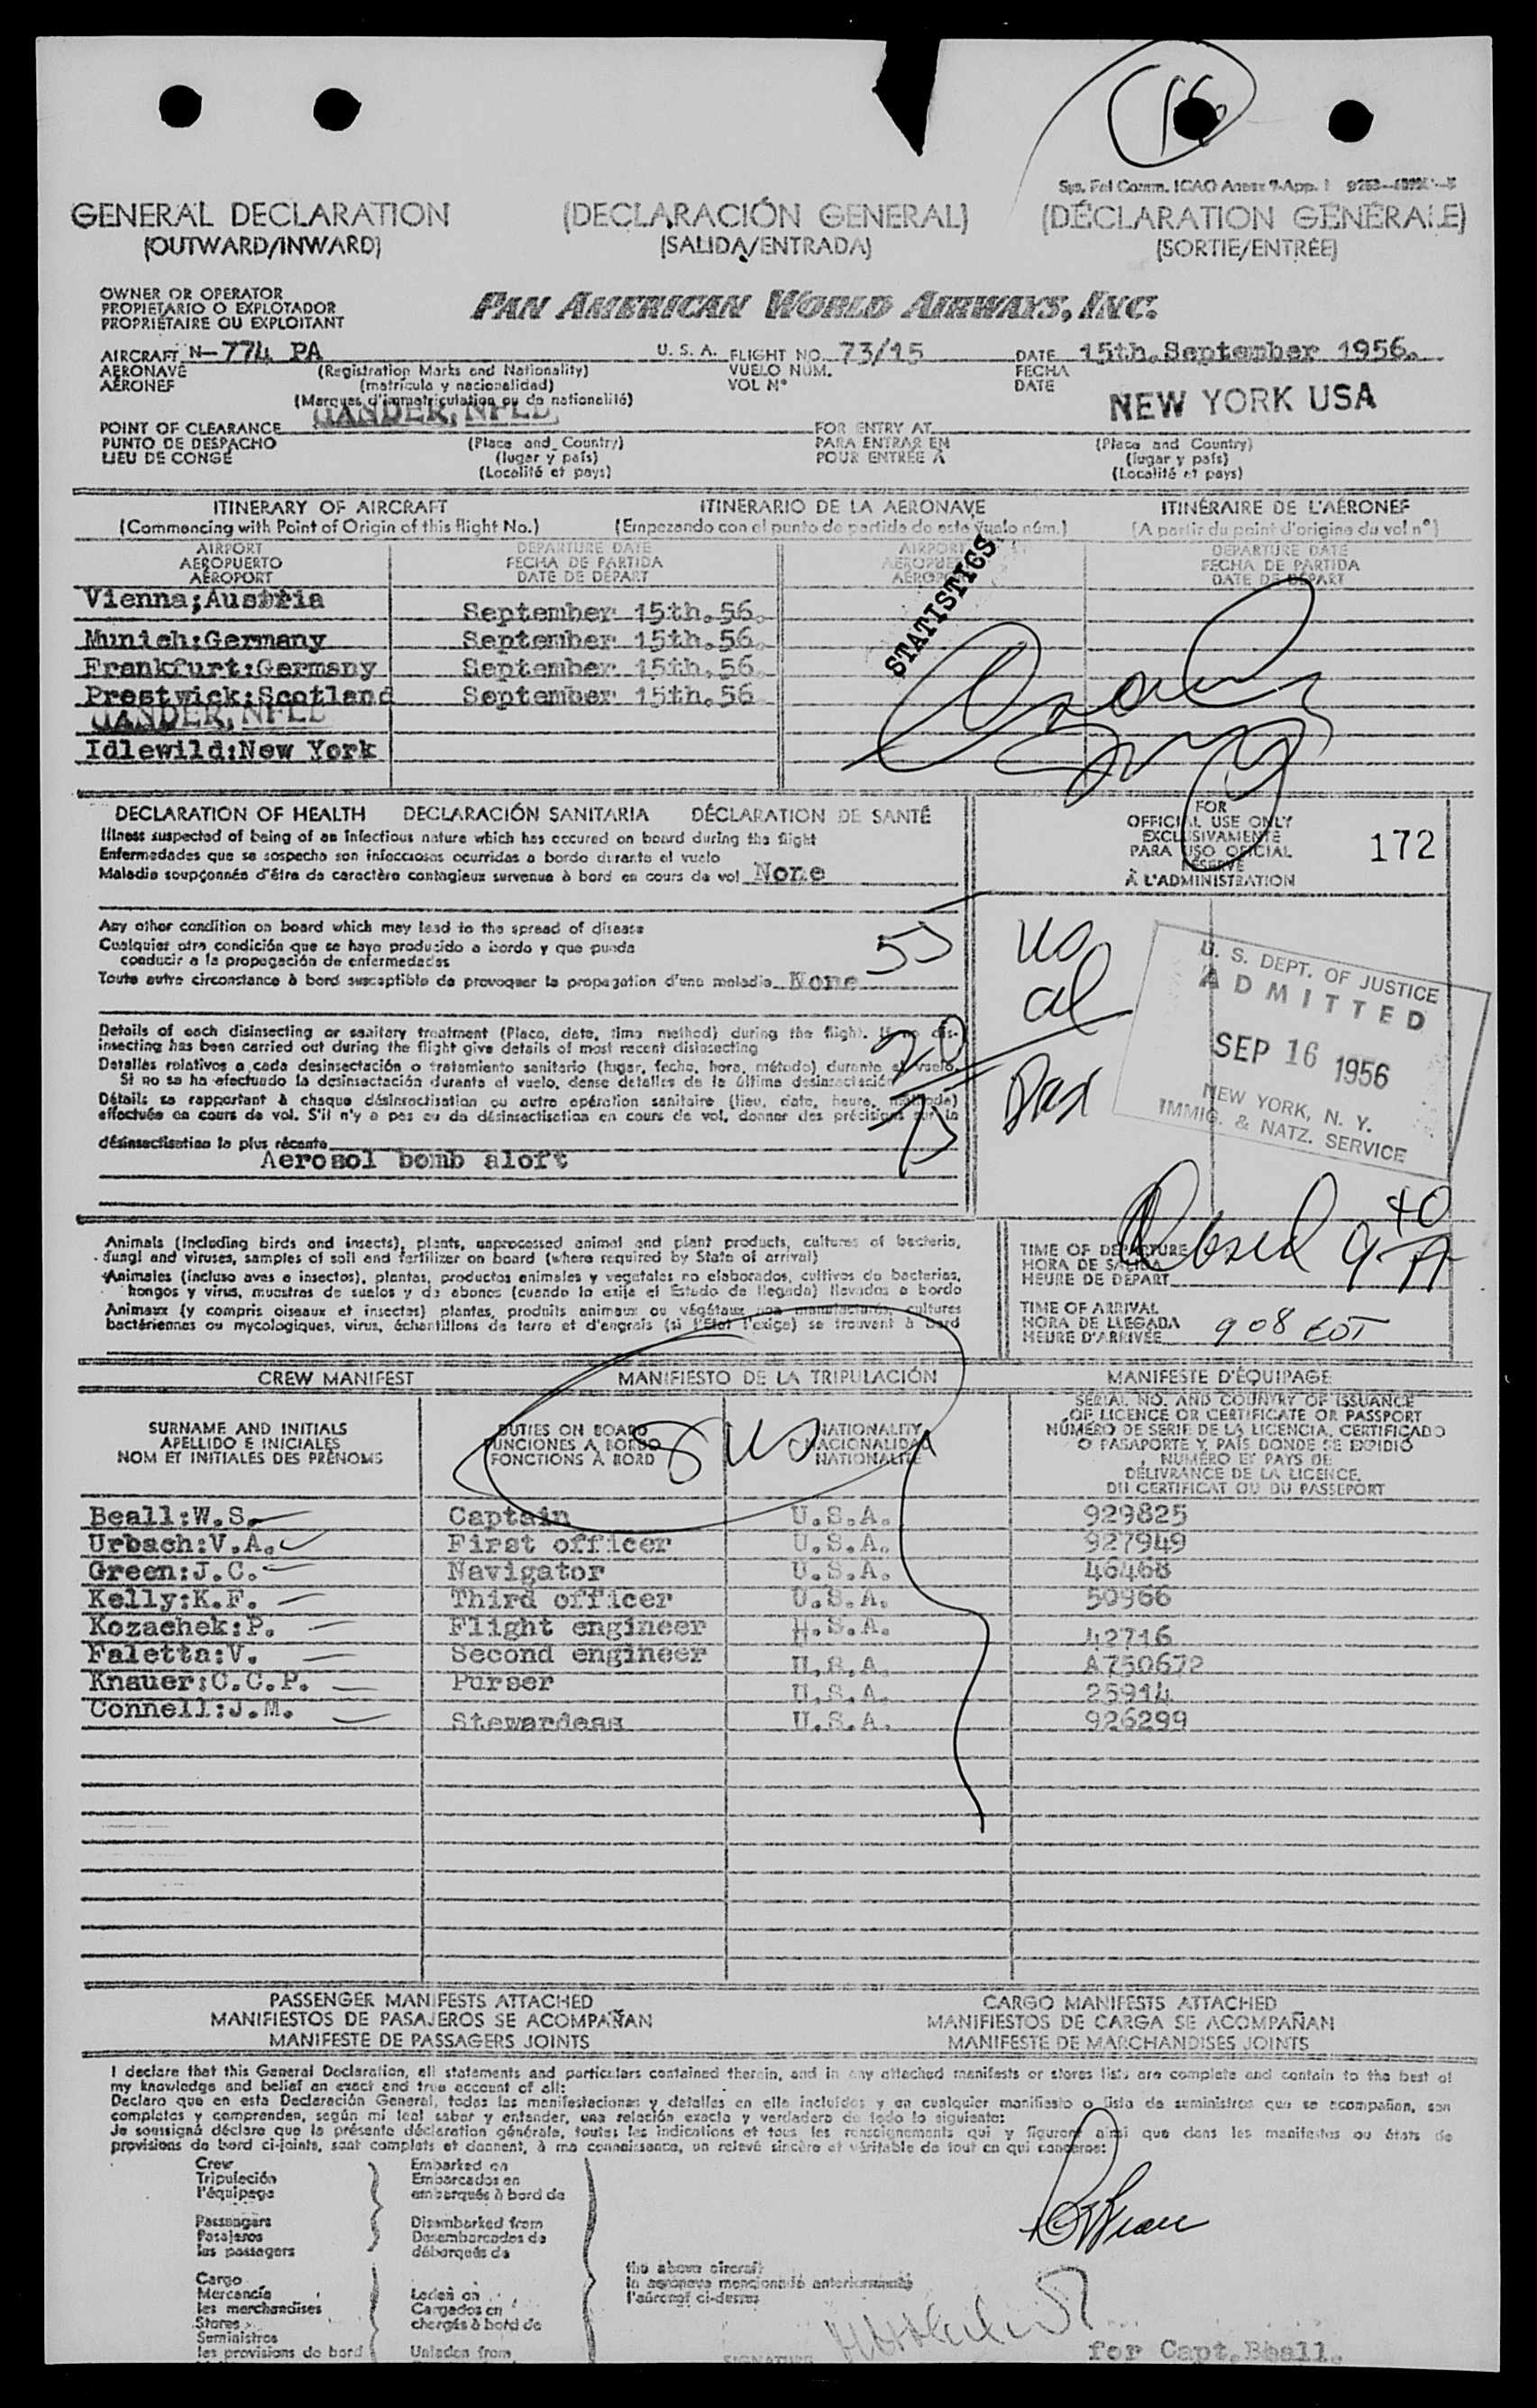 Sys. Fel Comm. ICAO Annex 9-App. 1
GENERAL DECLARATION (DECLARACIÓN GENERAL) (DÉCLARATION GÉNÉRALE)
(OUTWARD/INWARD) (SALIDA/ENTRADA) (SORTIE/ENTRÉE)
OWNER OR OPERATOR
PROPIETARIO O EXPLOTADOR
PROPRIÉTAIRE OU EXPLOITANT
PAN AMERICAN WORLD AIRWAYS, INC.
AIRCRAFT N-774 PA U. S. A. FLIGHT NO. 73/15 DATE 15th.September 1956.
AERONAVE (Registration Marks and Nationality) VUELO NÚM. FECHA
AÉRONEF (matrícula y nacionalidad) VOL Nº DATE
(Marques d'immatriculation ou de nationalité)
GANDER, NFLD NEW YORK USA
POINT OF CLEARANCE FOR ENTRY AT
PUNTO DE DESPACHO (Place and Country) PARA ENTRAR EN (Place and Country)
LIEU DE CONGÉ (lugar y país) POUR ENTRÉE À (lugar y país)
(Localité et pays) (Localité et pays)
ITINERARY OF AIRCRAFT ITINERARIO DE LA AERONAVE ITINÉRAIRE DE L'AÉRONEF
(Commencing with Point of Origin of this flight No.) (Empezando con el punto de partida de este vuelo núm.) (A partir du point d'origine du vol nº)
AIRPORT DEPARTURE DATE AIRPORT DEPARTURE DATE
AEROPUERTO FECHA DE PARTIDA AEROPUERTO FECHA DE PARTIDA
AÉROPORT DATE DE DÉPART AÉROPORT DATE DE DÉPART
STATISTICS
Vienna;Austria September 15th.56.
Munich:Germany September 15th.56.
Frankfurt:Germany September 15th.56.
Prestwick:Scotland September 15th.56
GANDER, NFLD
Idlewild:New York
DECLARATION OF HEALTH DECLARACIÓN SANITARIA DÉCLARATION DE SANTÉ
Illness suspected of being of an infectious nature which has occured on board during the flight
Enfermedades que se sospecha son infecciosas ocurridas a bordo durante el vuelo
Maladie soupçonnée d'être de caractère contagieux survenue à bord en cours de vol None
FOR
OFFICIAL USE ONLY
EXCLUSIVAMENTE
PARA USO OFICIAL
RÉSERVÉ
À L'ADMINISTRATION
172
Any other condition on board which may lead to the spread of disease
Cualquier otra condición que se haya producido a bordo y que pueda
conducir a la propagación de enfermedades
Toute autre circonstance à bord susceptible de provoquer la propagation d'une maladie None
U. S. DEPT. OF JUSTICE
ADMITTED
SEP 16 1956
NEW YORK, N. Y.
IMMIG. & NATZ. SERVICE
Details of each disinsecting or sanitary treatment (Place, date, time method) during the flight. If no dis-
insecting has been carried out during the flight give details of most recent disinsecting
Detalles relativos a cada desinsectación o tratamiento sanitario (lugar, fecha, hora, método) durante el vuelo.
Si no se ha efectuado la desinsectación durante el vuelo, dense detalles de la última desinsectación
Détails se rapportant à chaque désinsectisation ou autre opération sanitaire (lieu, date, heure, méthode)
effectuée en cours de vol. S'il n'y a pas eu de désinsectisation en cours de vol, donner des précisions sur la
désinsectisation la plus récente
Aerosol bomb aloft
Animals (including birds and insects), plants, unprocessed animal and plant products, cultures of bacteria,
fungi and viruses, samples of soil and fertilizer on board (where required by State of arrival)
Animales (incluso aves e insectos), plantas, productos animales y vegetales no elaborados, cultivos de bacterias,
hongos y virus, muestras de suelos y de abonos (cuando lo exija el Estado de llegada) llevados a bordo
Animaux (y compris oiseaux et insectes) plantes, produits animaux ou végétaux non manufacturés, cultures
bactériennes ou mycologiques, virus, échantillons de terre et d'engrais (si l'État l'exige) se trouvant à bord
TIME OF DEPARTURE
HORA DE SALIDA
HEURE DE DÉPART
TIME OF ARRIVAL
HORA DE LLEGADA
HEURE D'ARRIVÉE 9 08 EDT
CREW MANIFEST MANIFIESTO DE LA TRIPULACIÓN MANIFESTE D'ÉQUIPAGE
SURNAME AND INITIALS
APELLIDO E INICIALES
NOM ET INITIALES DES PRÉNOMS
DUTIES ON BOARD
FUNCIONES A BORDO
FONCTIONS À BORD
8 US
NATIONALITY
NACIONALIDAD
NATIONALITÉ
SERIAL NO. AND COUNTRY OF ISSUANCE
OF LICENCE OR CERTIFICATE OR PASSPORT
NÚMERO DE SERIE DE LA LICENCIA, CERTIFICADO
O PASAPORTE Y PAÍS DONDE SE EXPIDIÓ
NUMÉRO ET PAYS DE
DÉLIVRANCE DE LA LICENCE,
DU CERTIFICAT OU DU PASSEPORT
Beall:W.S. Captain U.S.A. 929825
Urbach:V.A. First officer U.S.A. 927949
Green:J.C. Navigator U.S.A. 46468
Kelly:K.F. Third officer U.S.A. 50966
Kozachek:P. Flight engineer U.S.A. 42716
Faletta:V. Second engineer U.S.A. A750672
Knauer:C.C.P. Purser U.S.A. 25914
Connell:J.M. Stewardess U.S.A. 926299
PASSENGER MANIFESTS ATTACHED CARGO MANIFESTS ATTACHED
MANIFIESTOS DE PASAJEROS SE ACOMPAÑAN MANIFIESTOS DE CARGA SE ACOMPAÑAN
MANIFESTE DE PASSAGERS JOINTS MANIFESTE DE MARCHANDISES JOINTS
I declare that this General Declaration, all statements and particulars contained therein, and in any attached manifests or stores lists are complete and contain to the best of
my knowledge and belief an exact and true account of all:
Declaro que en esta Declaración General, todas las manifestaciones y detalles en ella incluidos y en cualquier manifiesto o lista de suministros que se acompañan, son
completos y comprenden, según mi leal saber y entender, una relación exacta y verdadera de todo lo siguiente:
Je soussigné déclare que la présente déclaration générale, toutes les indications et tous les renseignements qui y figurent ainsi que dans les manifestes ou états de
provisions de bord ci-joints, sont complets et donnent, à ma connaissance, un relevé sincère et véritable de tout en qui concerne:
Crew
Tripulación
l'équipage
Embarked on
Embarcados en
embarqués à bord de
Passengers
Pasajeros
les passagers
Disembarked from
Desembarcados de
débarqués de
Cargo
Mercancía
les marchandises
Stores
Suministros
les provisions de bord
Laden on
Cargados en
chargés à bord de
Unladen from
the above aircraft
la aeronave mencionada anteriormente
l'aéronef ci-dessus
SIGNATURE
for Capt.Beall.